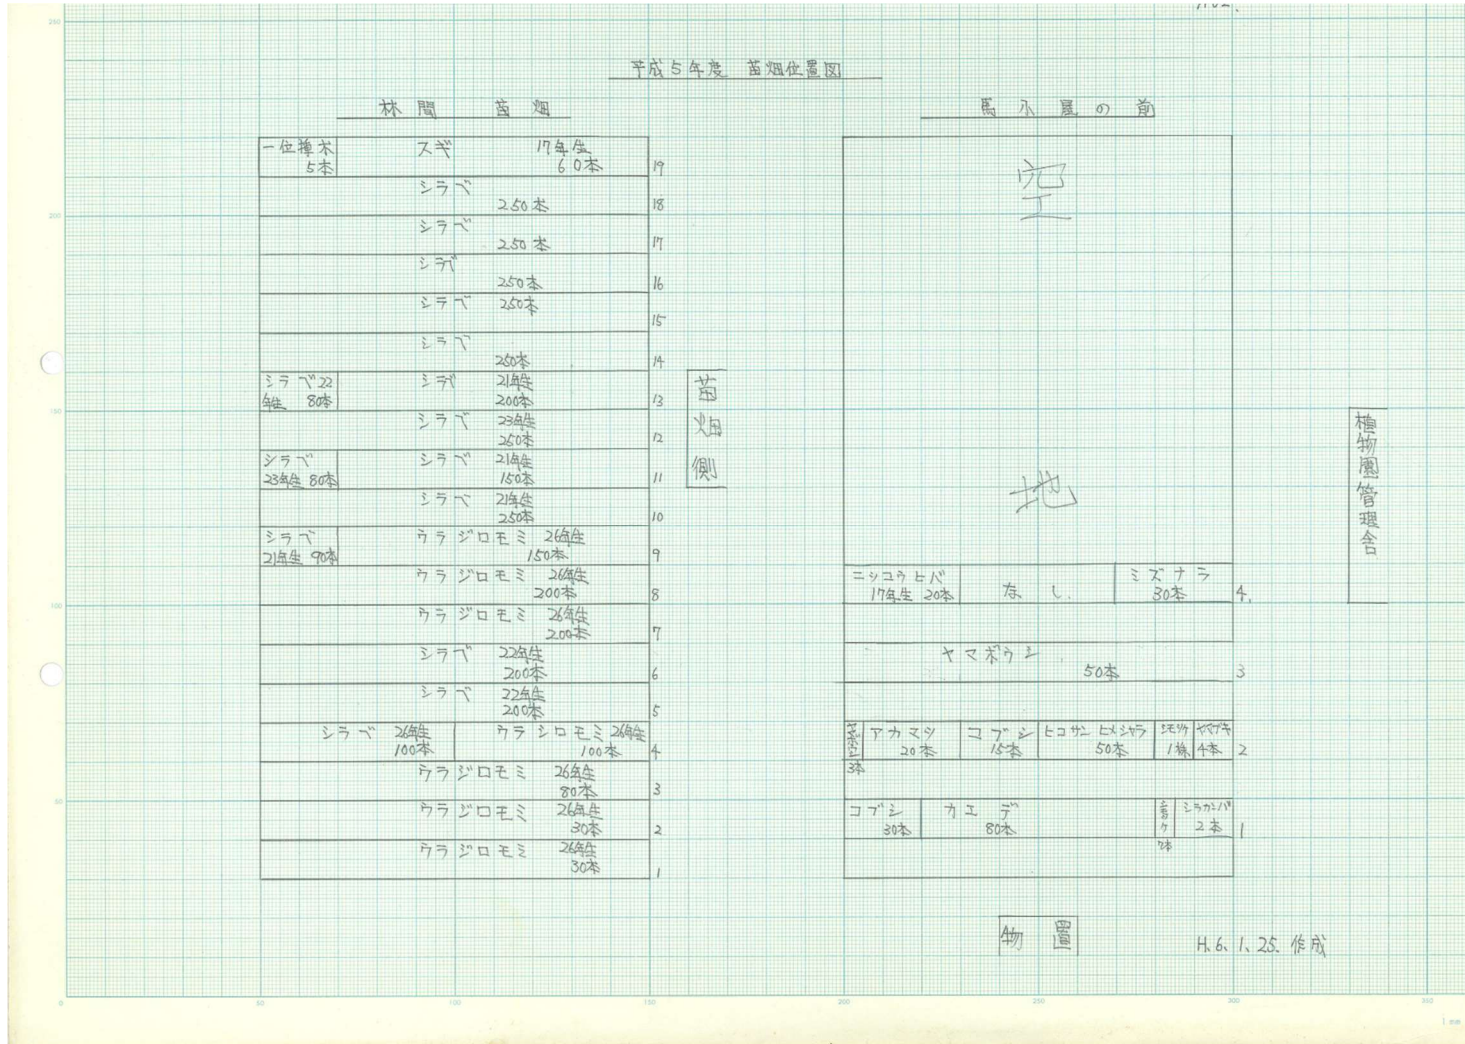 平成5年度 苗畑位置図
林間 苗畑
一位挿木
5本
スギ 17年生
60本
19
シラベ
250本
18
シラベ
250本
17
シラベ
250本
16
シラベ 250本
15
シラベ
250本
14
シラベ22
年生 80本
シラベ 21年生
200本
13
シラベ 23年生
250本
12
シラベ
23年生 80本
シラベ 21年生
150本
11
シラベ 21年生
250本
10
シラベ
21年生 90本
ウラジロモミ 26年生
150本
9
ウラジロモミ 26年生
200本
8
ウラジロモミ 26年生
200本
7
シラベ 22年生
200本
6
シラベ 22年生
200本
5
シラベ 26年生
100本
ウラジロモミ 26年生
100本
4
ウラジロモミ 26年生
80本
3
ウラジロモミ 26年生
30本
2
ウラジロモミ 26年生
30本
1
苗畑側
馬小屋の前
空
地
ニッコウヒバ
17年生 20本
なし.
ミズナラ
30本
4.
ヤマボウシ
50本
3
3本
アカマツ
20本
コブシ
15本
ヒコサンヒメシャラ
50本
シモツケ
1株
ヤマブキ
4本
2
コブシ
30本
カエデ
80本
シラカンバ
2本
1
植物園管理舎
物置
H.6.1.25.作成
0
50
100
150
200
250
300
350
50
100
150
200
250
1mm